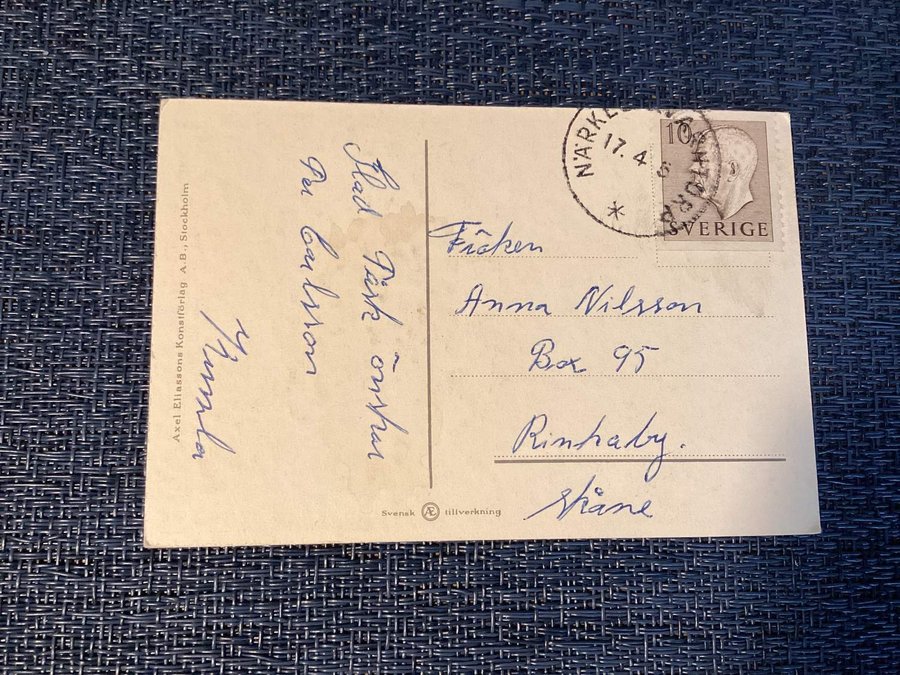 Axel Eliassons Konstförlag A.-B., Stockholm
Glad Påsk önskar
Per Carlsson
Kumla
Svensk Æ tillverkning
17. 4
10
SVERIGE
Fröken
Anna Nilsson
Box 95
Rinkaby.
Skåne